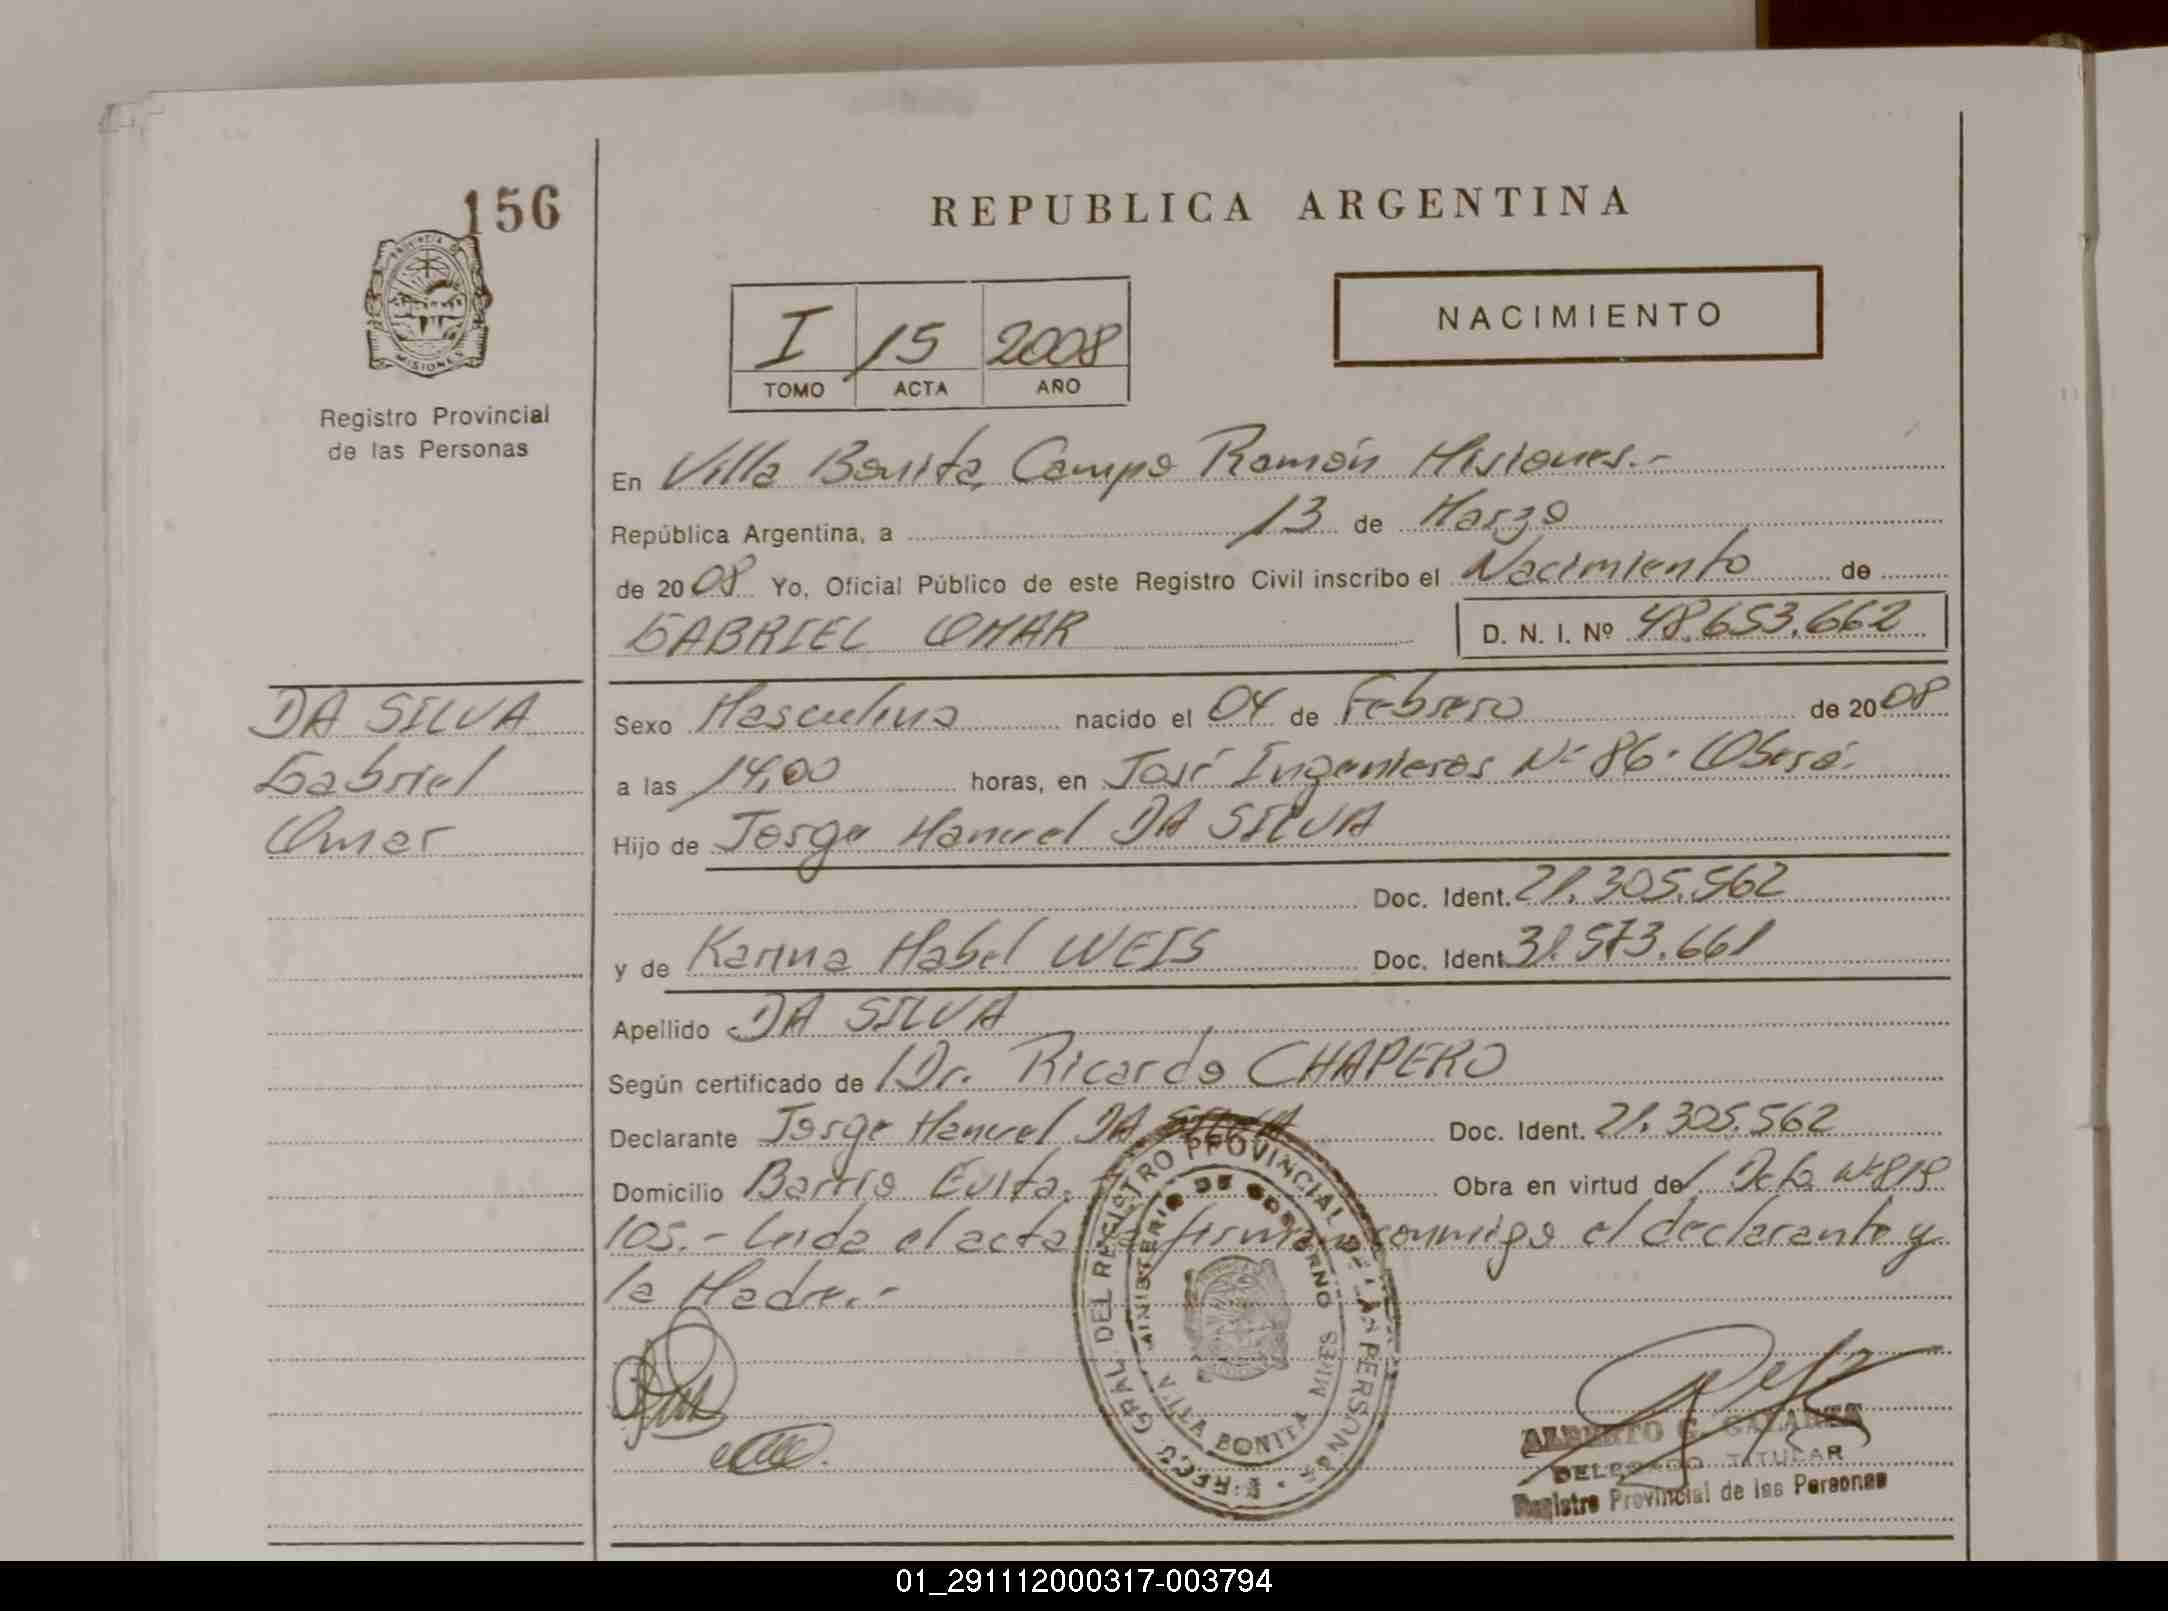 156
REPUBLICA ARGENTINA
PROVINCIA DE MISIONES
Registro Provincial
de las Personas
I 15 2008
TOMO ACTA AÑO
NACIMIENTO
En Villa Bonita, Campo Ramón Misiones.-
República Argentina, a 13 de Marzo
de 2008 Yo, Oficial Público de este Registro Civil inscribo el Nacimiento de
GABRIEL OMAR D. N. I. Nº 48.653.662
DA SILVA
Gabriel
Omar
Sexo Masculino nacido el 04 de Febrero de 2008
a las 14,00 horas, en José Ingenieros Nº 86. Oberá.
Hijo de Jorge Manuel DA SILVA
Doc. Ident. 21.305.562
y de Karina Mabel WEIS Doc. Ident. 31.573.661
Apellido DA SILVA
Según certificado de Dr. Ricardo CHAPERO
Declarante Jorge Manuel DA SILVA Doc. Ident. 21.305.562
Domicilio Barrio Evita. Obra en virtud del Dcto Nº 818
105.- Leida el acta la firman conmigo el declarante y
la Madre.-
REGº GRAL DEL REGISTRO PROVINCIAL DE LAS PERSONAS
MINISTERIO DE GOBIERNO
VILLA BONITA MNES
ALBERTO G.
DELEGADO TITULAR
Registro Provincial de las Personas
01_291112000317-003794